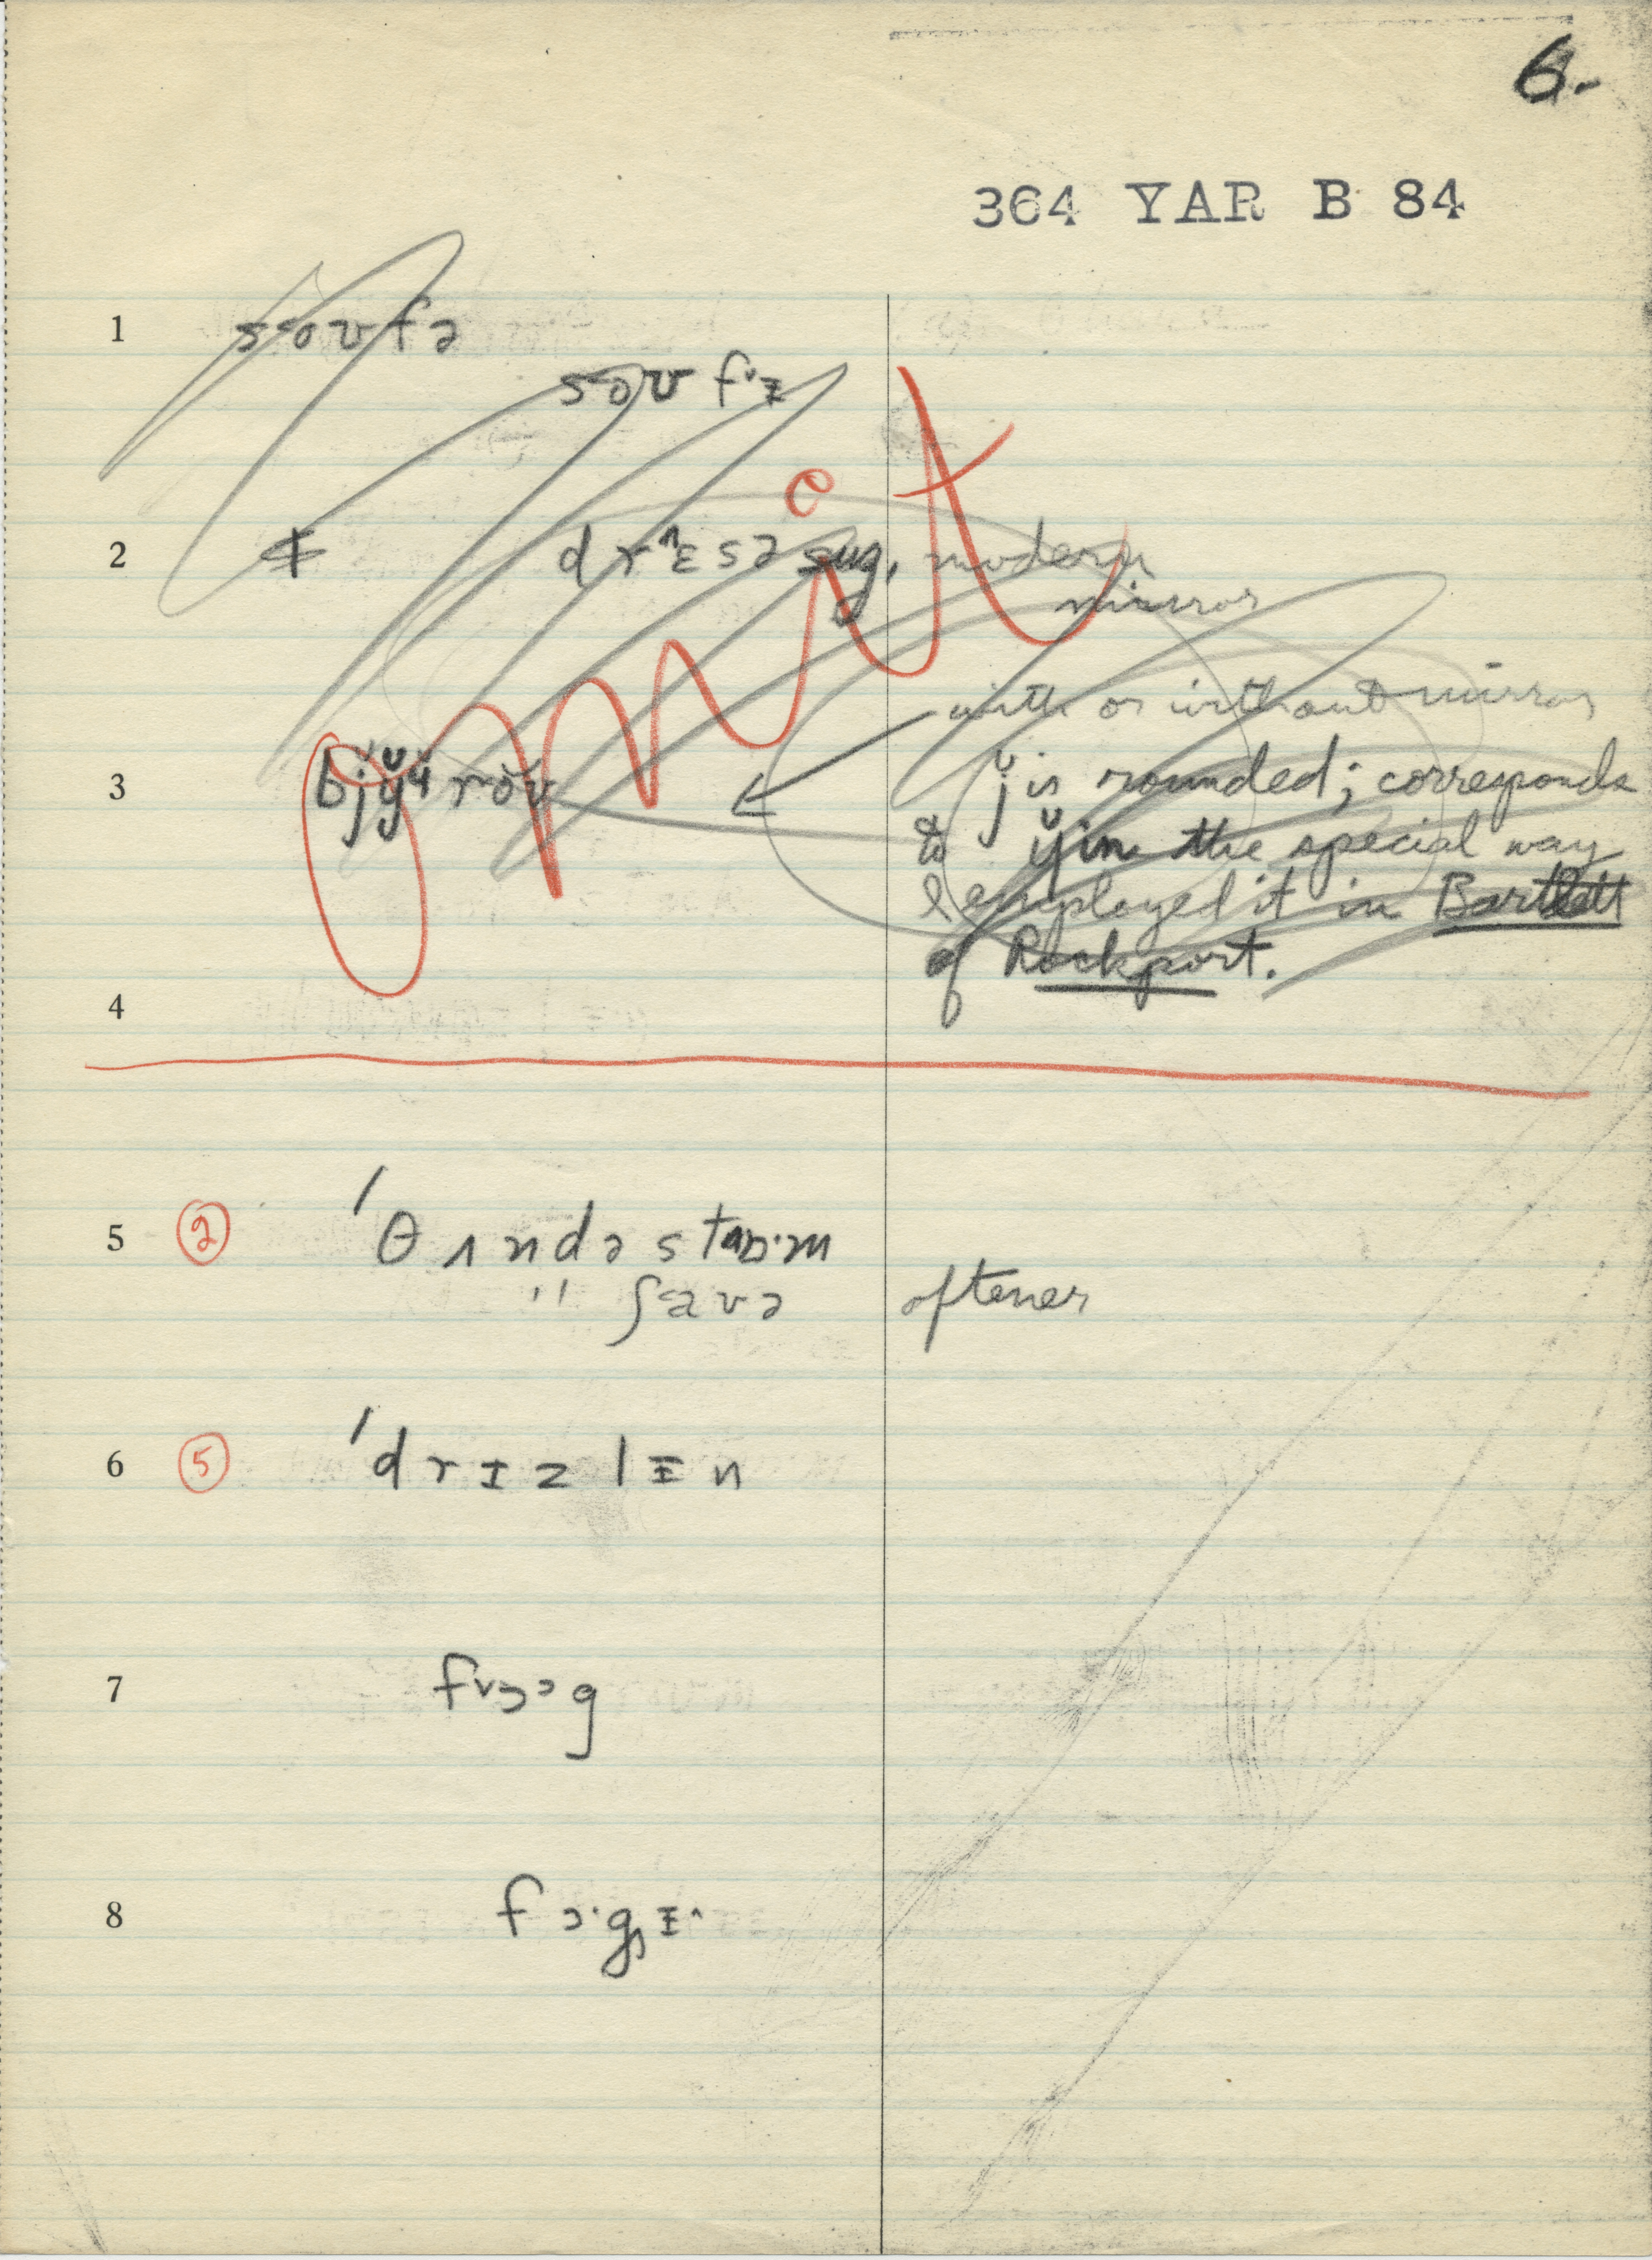 6.
364 YAR B 84
1 soʊfə
soʊ fˇɪ
omit
2 ₵ drˆɛsə sug. modern
mirror
with or without mirror
3 roʊ j̆ is rounded; corresponds
to y̆ in the special way
I employed it in Bartlett
of Rockport.
4
5 ② ˈθʌndəstɒˑm
" ʃaʊə oftener
6 ⑤ ˈdrɪzlɪn
7 fˇɔɔg
8 fɔˑgɪˆ